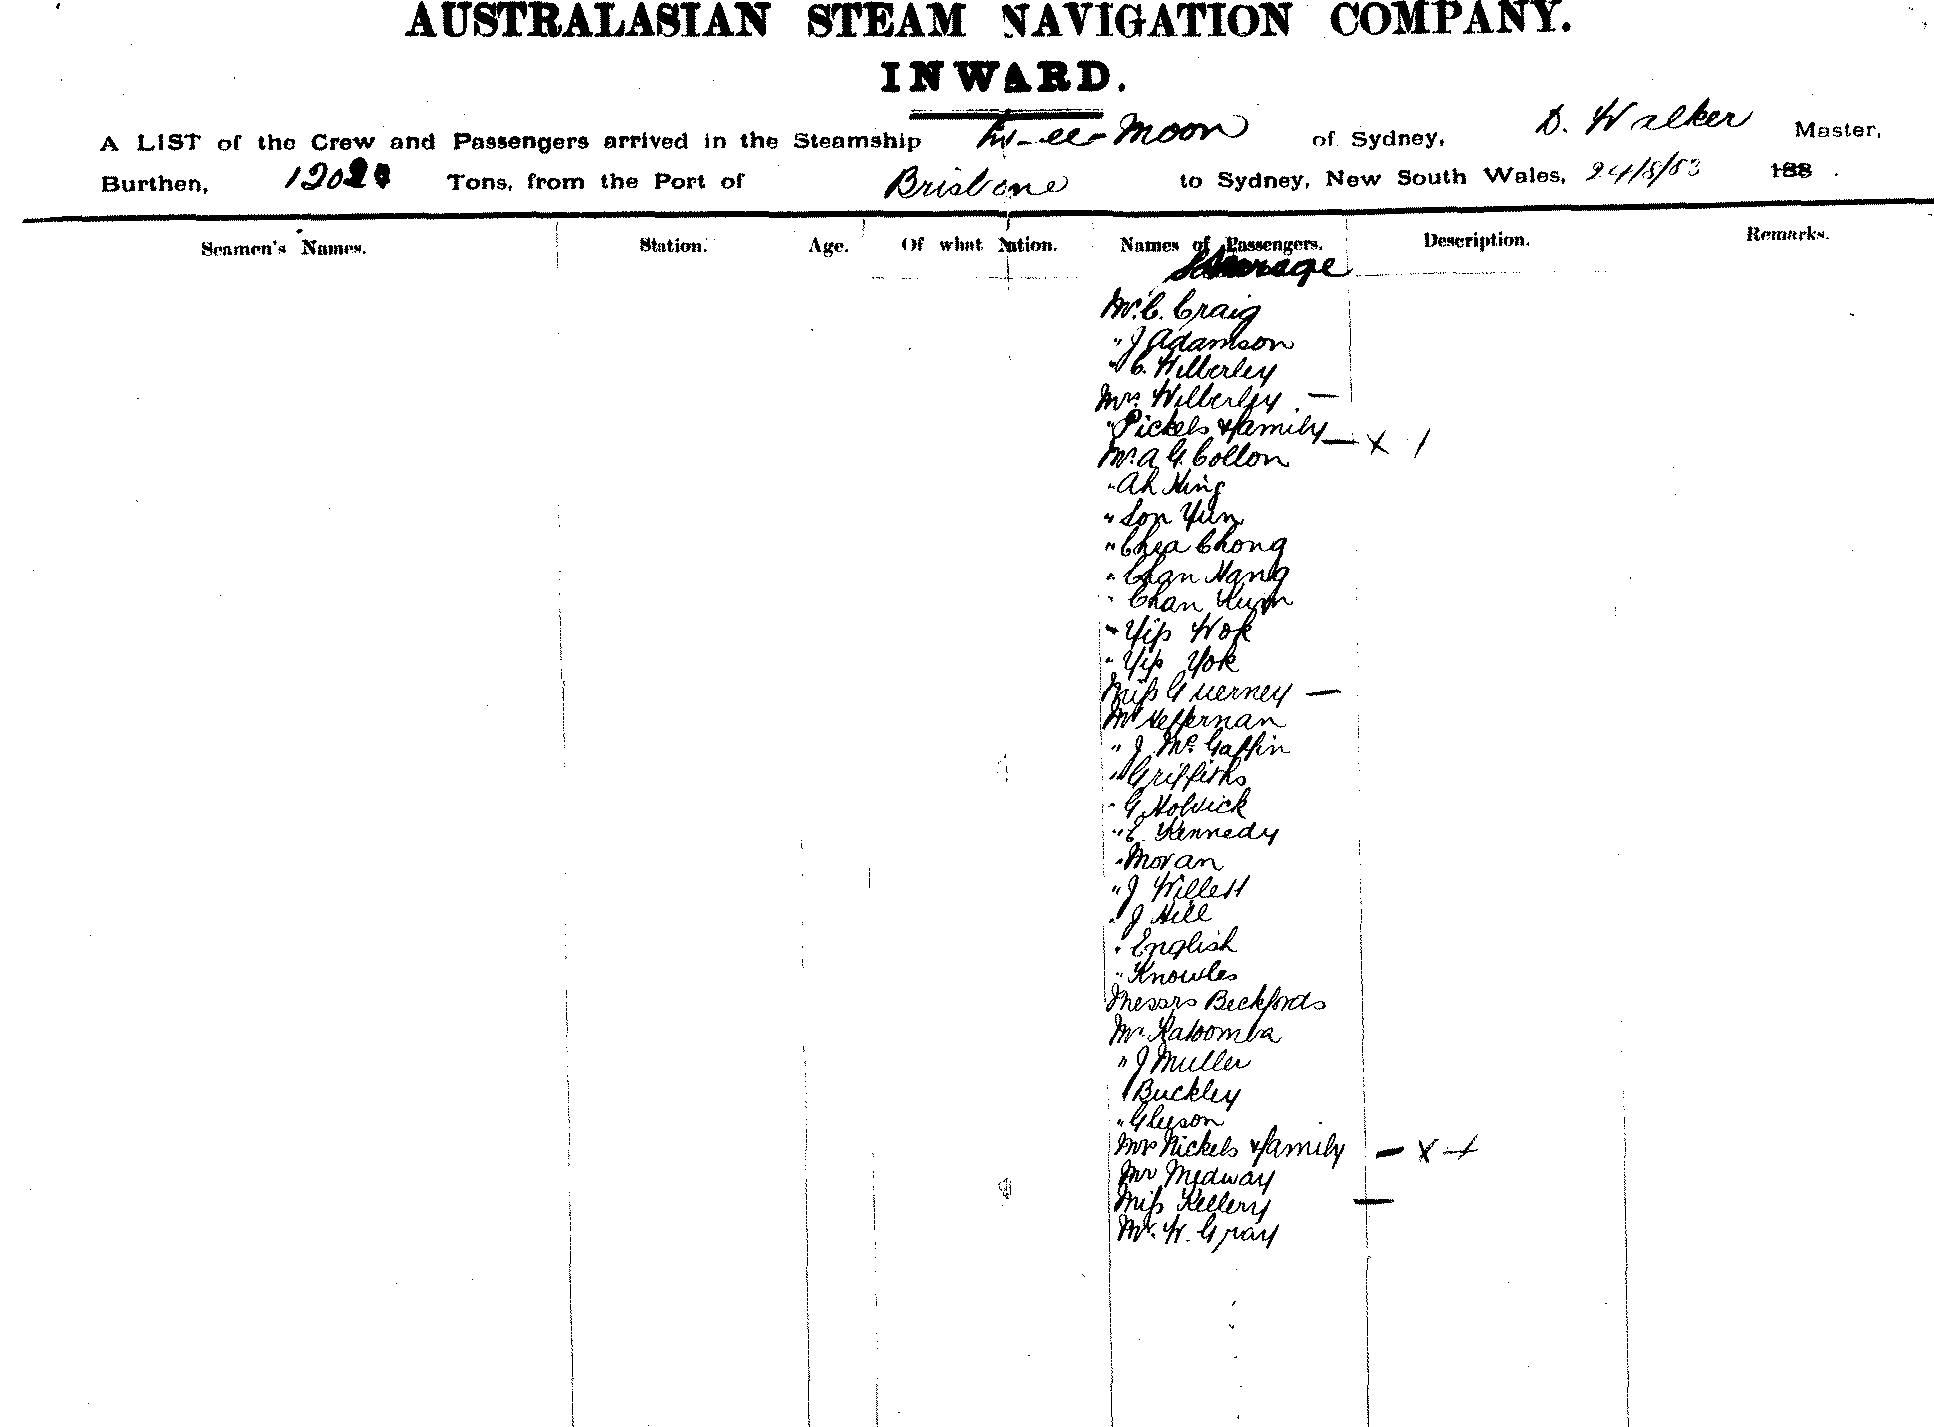 AUSTRALASIAN STEAM NAVIGATION COMPANY.
INWARD.
A LIST of the Crew and Passengers arrived in the Steamship Ly-ee-Moon of Sydney, D. Walker Master,
Burthen, Tons, from the Port of Brisbane to Sydney, New South Wales, 24/8/83 188 .
Seamen's Names. Station. Age. Of what Nation. Names of Passengers. Description. Remarks.
Steerage
Mr. C. Craig
" J Adamson
" C. Wilberley
Mrs. Wilberley —
" Pickels & family — x 1
Mr. A. G. Collon
" Ah King
" Son Yun
" Chea Chong
" Chan Hang
" Chan Kum
" Yip Wok
" Yip Yok
Miss Guerney —
Mr Heffernan
" J. Mc. Gaffin
" Griffiths
" G Holvick
" E. Kennedy
" Moran
" J Willett
" J Hill
" English
" Knowles
Messrs Beckfords
Mr. Katoomba
" J Muller
" Buckley
" Gleeson
Mrs Nickels & family — x +
Mr Medway
Miss Kellery —
Mr. W. Gray